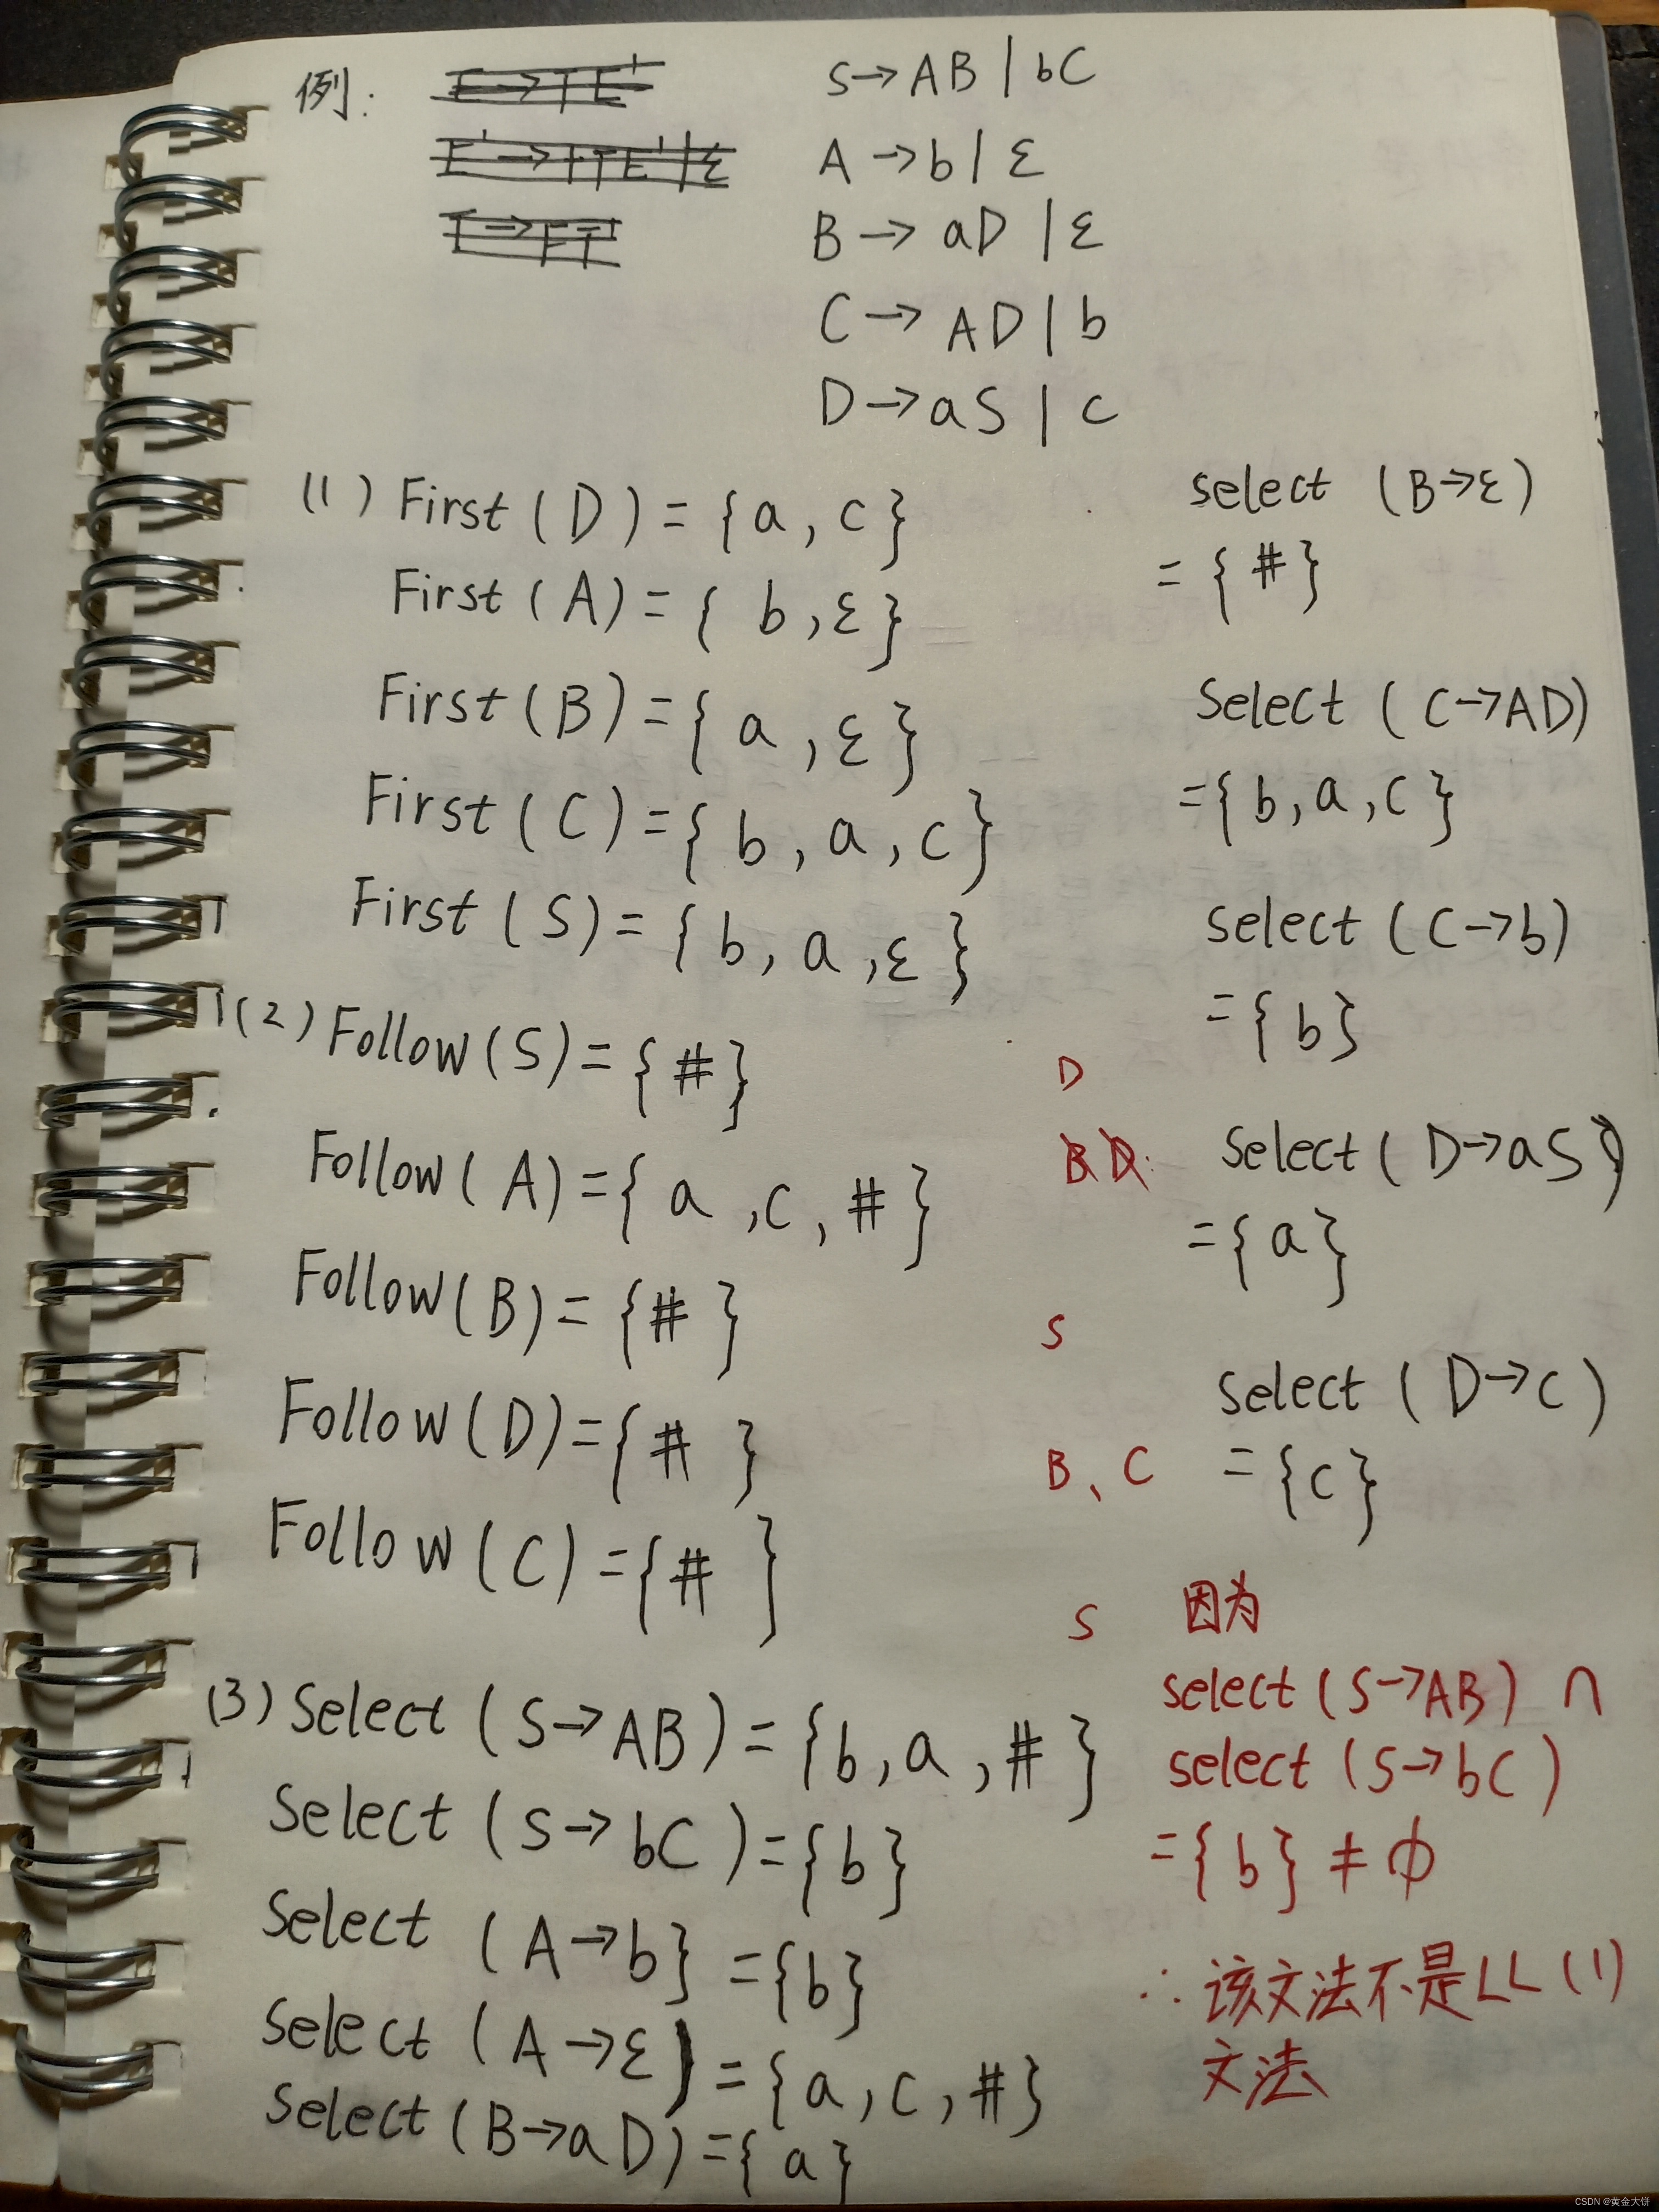 例: E→TE' S→AB | bC
E'→+TE'|ε A→b | ε
T→FT' B→aD | ε
C→AD | b
D→aS | c
(1) First(D)={a,c}
First(A)={b,ε}
First(B)={a,ε}
First(C)={b,a,c}
First(S)={b,a,ε}
(2) Follow(S)={#} D
Follow(A)={a,c,#} B D
Follow(B)={#} S
Follow(D)={#} B、C
Follow(C)={#} S
(3) Select(S→AB)={b,a,#}
Select(S→bC)={b}
Select(A→b}={b}
Select(A→ε)={a,c,#}
Select(B→aD)={a}
select(B→ε)
={#}
Select(C→AD)
={b,a,c}
select(C→b)
={b}
Select(D→aS)
={a}
select(D→c)
={c}
因为
select(S→AB)∩
select(S→bC)
={b}≠∅
∴该文法不是LL(1)
文法
CSDN @黄金大饼